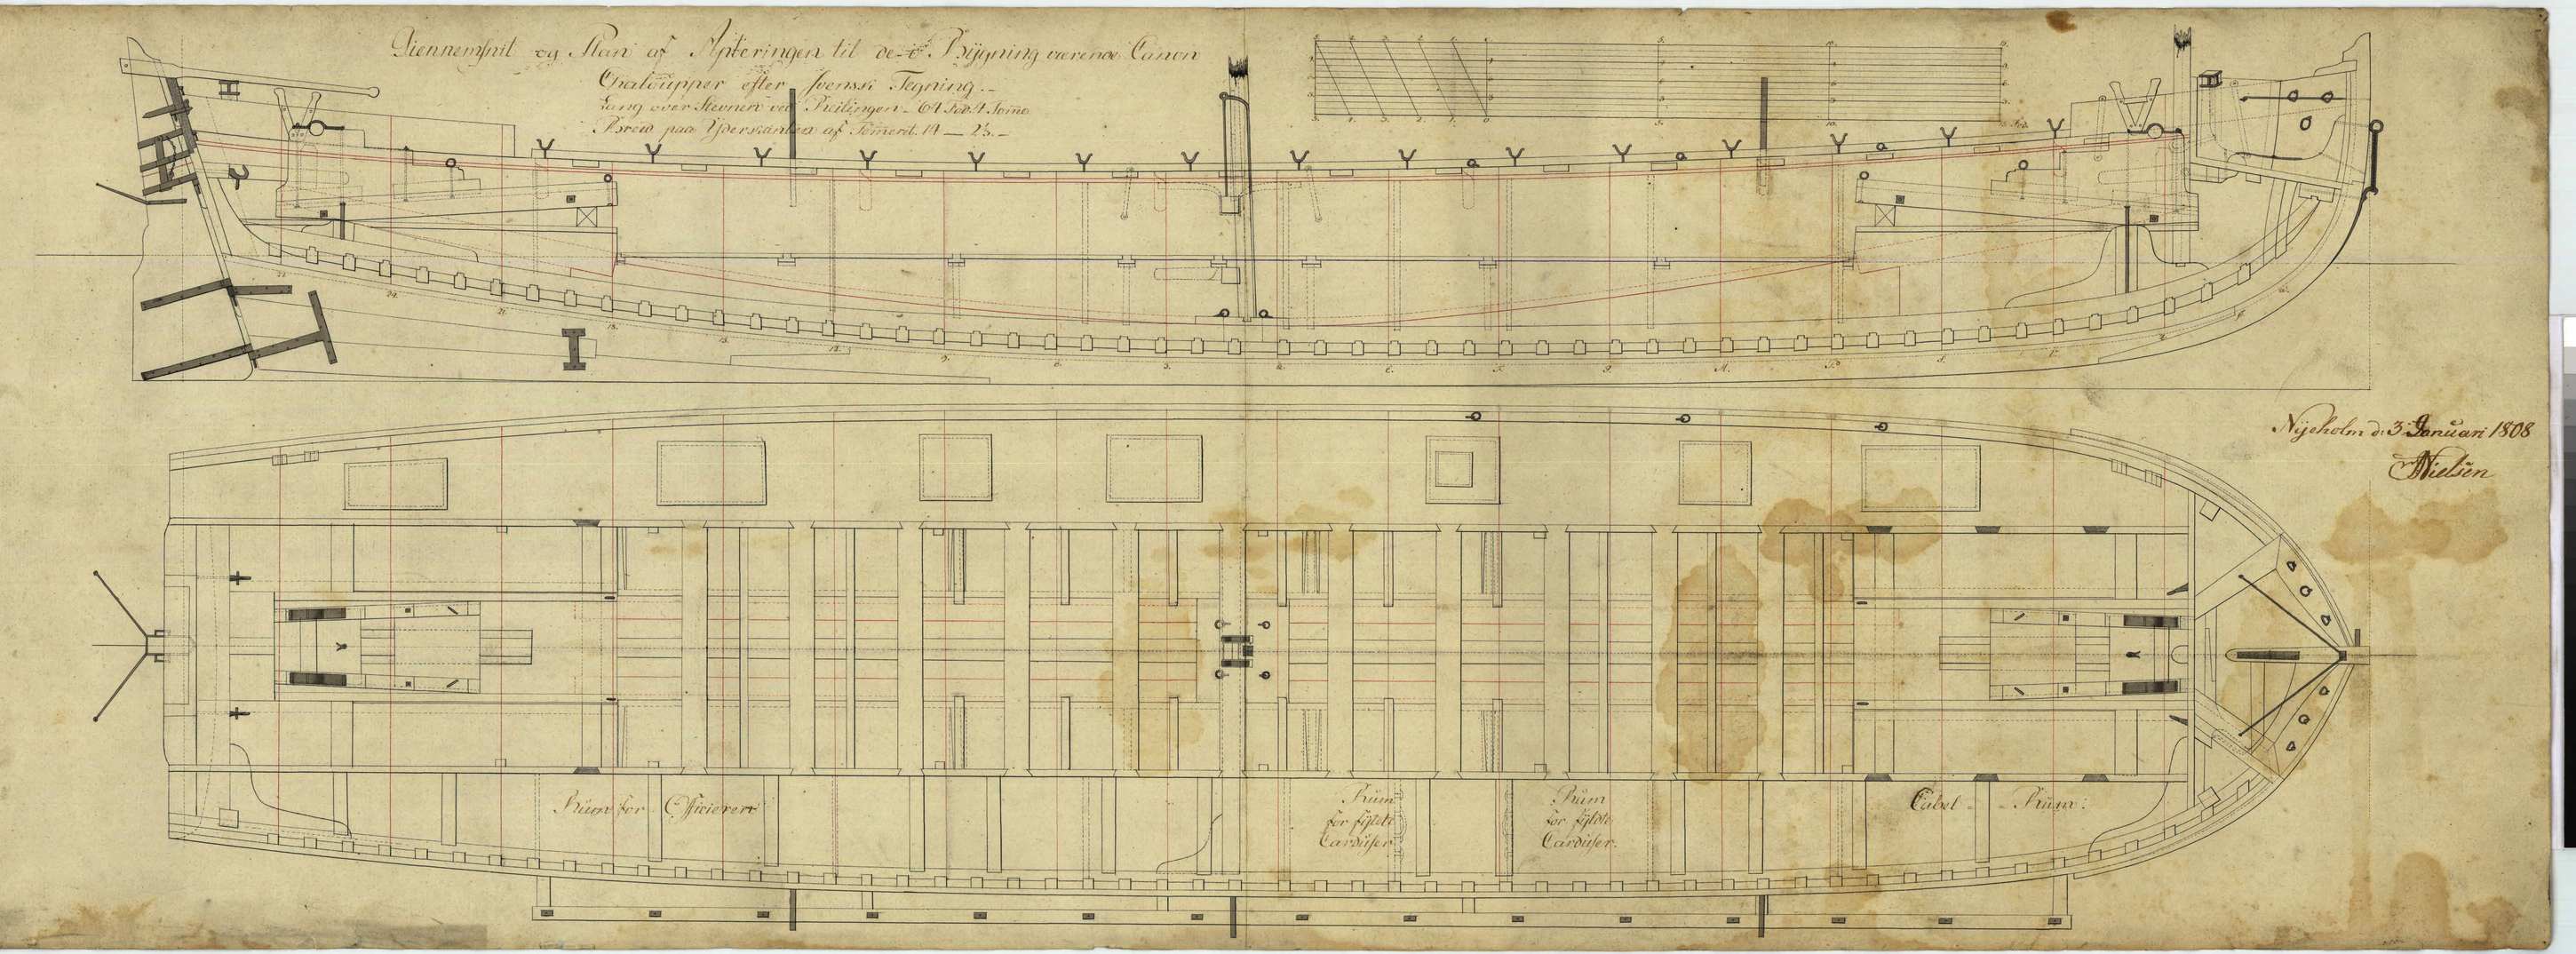 Giennemsnit og Plan af Apteringen til de i Bÿgning værende Canon
Chaloupper efter Svensk Tegning.-
Lang over Stevnene ved Reilingen - 64 Fod. 4 Tome
Bred paa Yderkanten af Tömeret. 14 — 2½.-
Nyeholm d: 3 Januari 1808
Nielsen
Rüm for Officierer
Rüm
for fÿldte
Cardüser
Rüm
for fÿldte
Cardüser.
Cabel - Rüm: